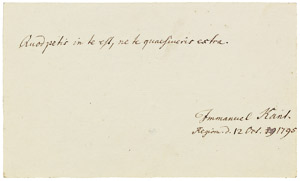 Quod petis in te est, ne te quaesiveris extra.
Immanuel Kant.
Regiom. d. 12 Oct. 1795